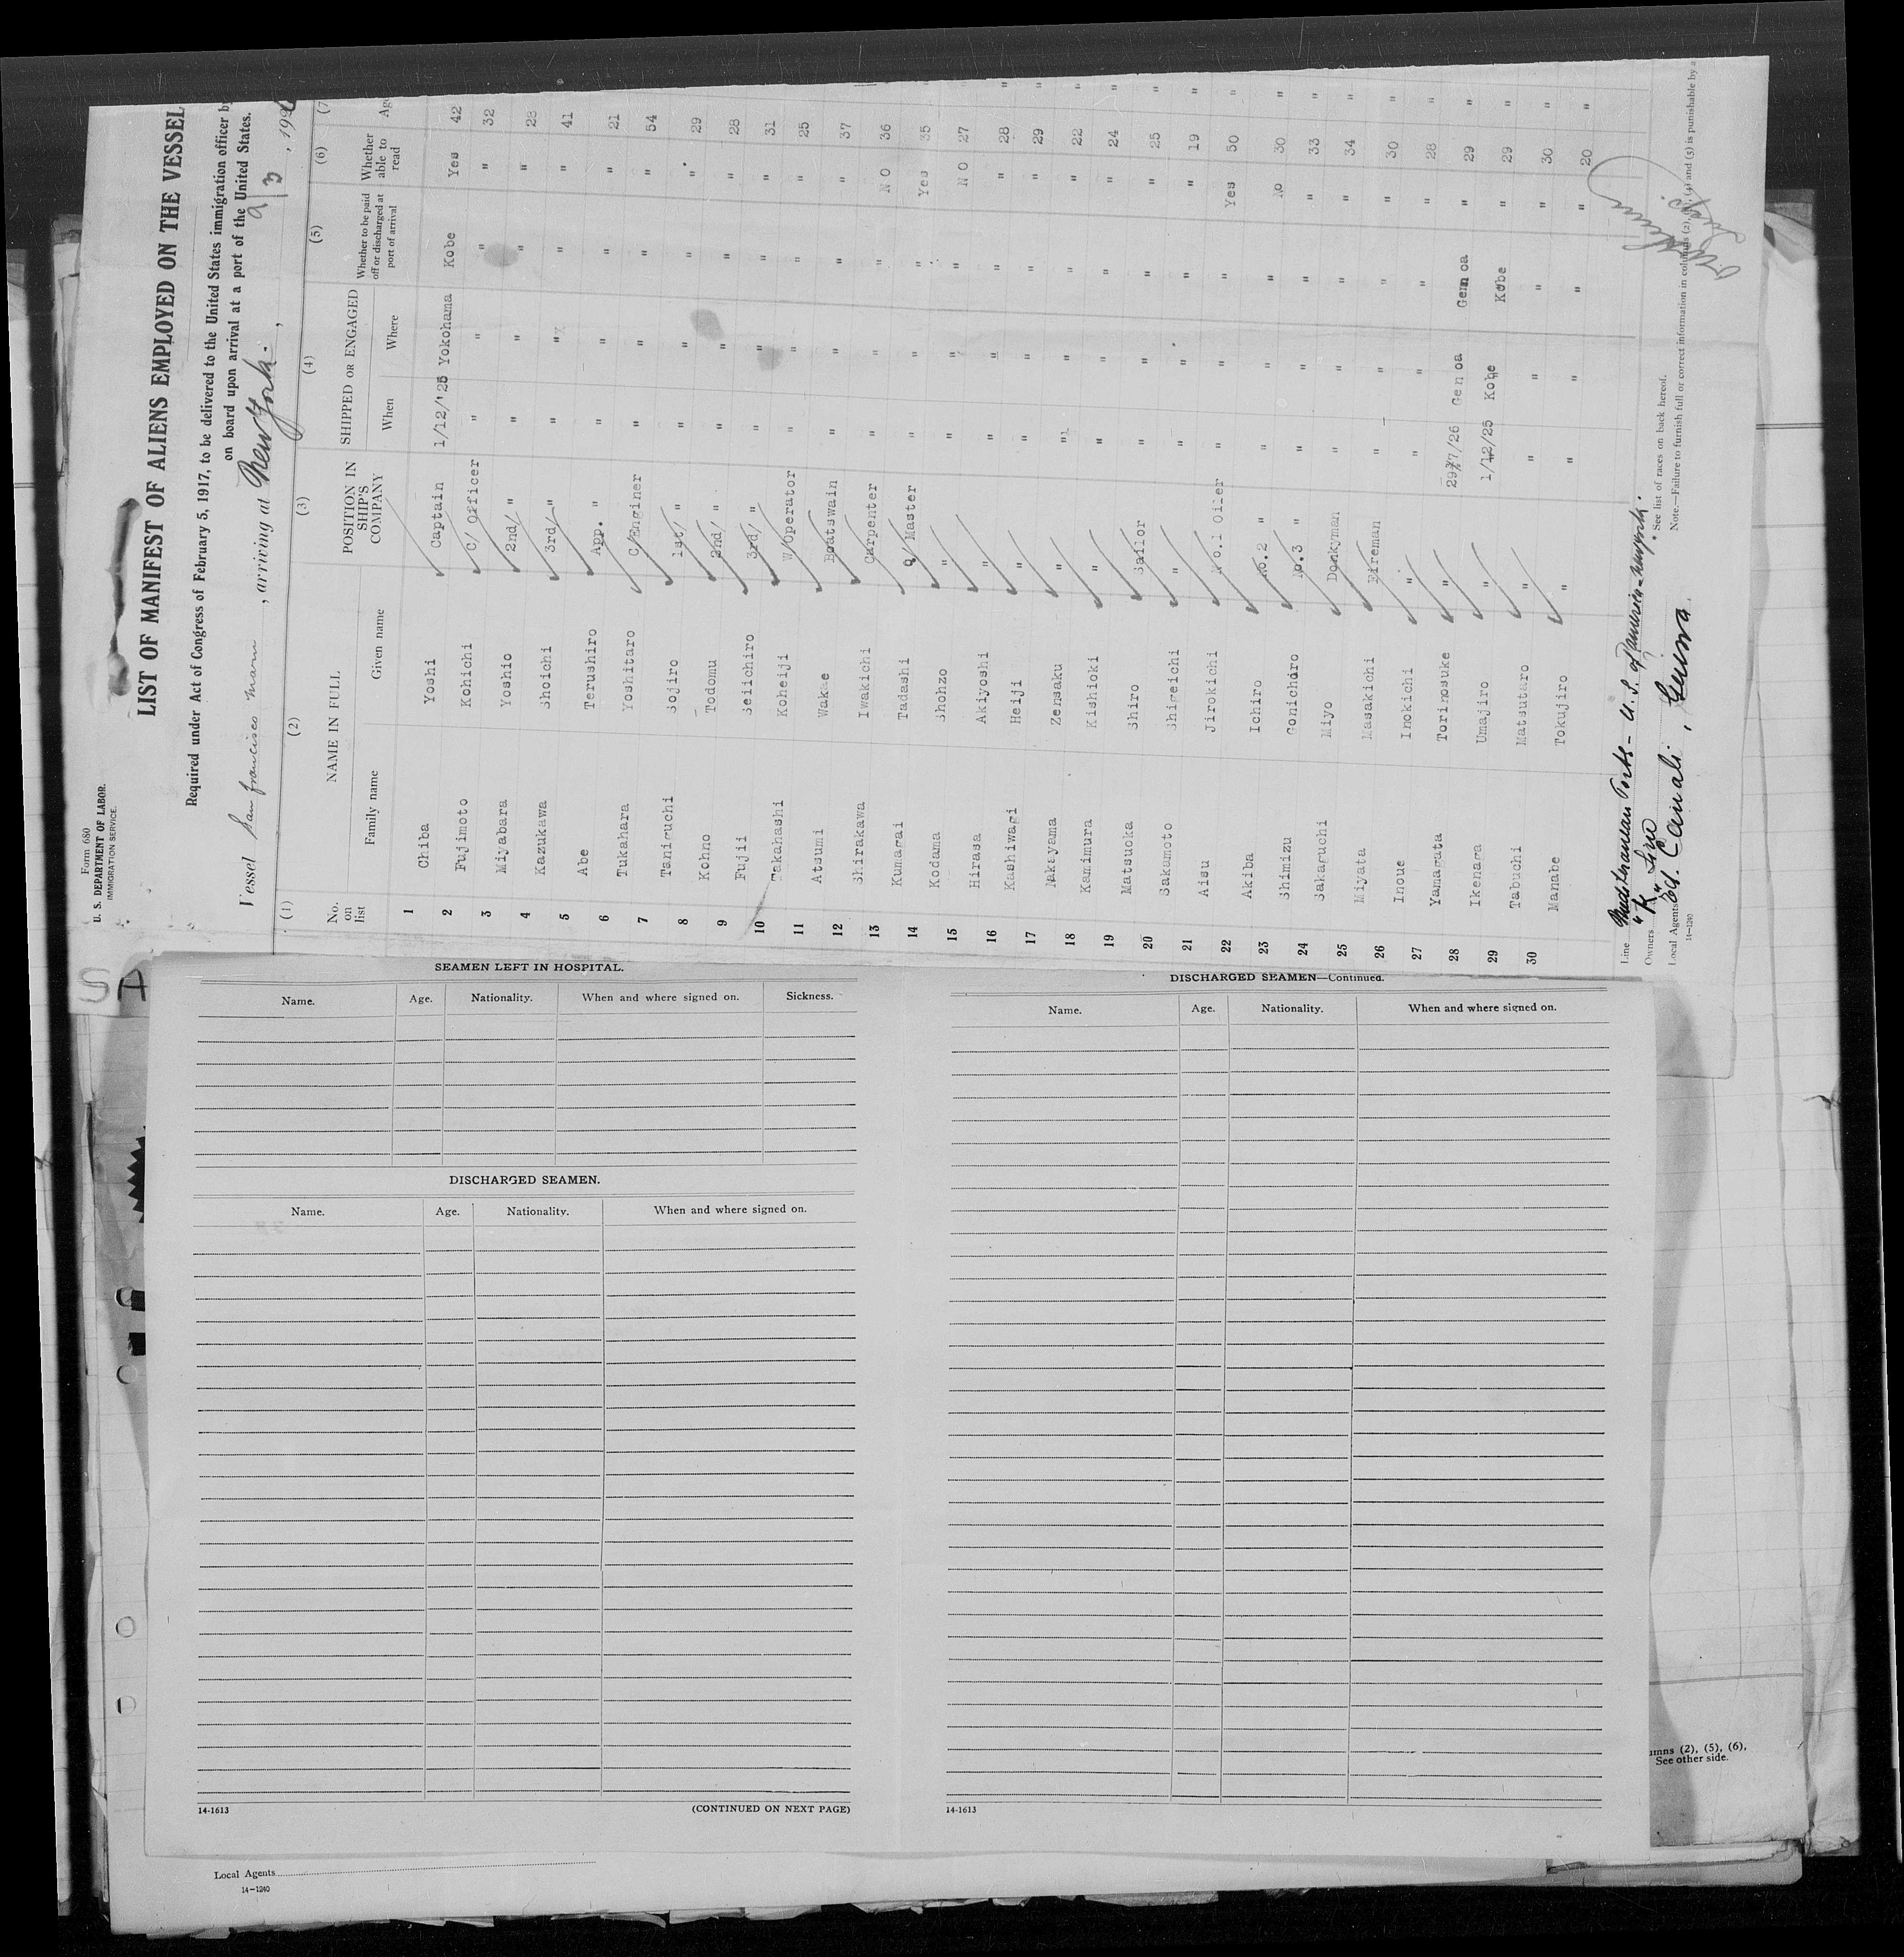 Form 680
U. S. DEPARTMENT OF LABOR.
IMMIGRATION SERVICE.
LIST OF MANIFEST OF ALIENS EMPLOYED ON THE VESSEL
Required under Act of Congress of February 5, 1917, to be delivered to the United States immigration officer
on board upon arrival at a port of the United States.
Vessel San Francisco Maru, arriving at New York, 9/3, 192
(1) (2) (3) (4) (5) (6) (7
No. on list NAME IN FULL POSITION IN SHIP'S COMPANY SHIPPED OR ENGAGED Whether to be paid off or discharged at port of arrival Whether able to read Age
Family name Given name When Where
1 Chiba Yoshi Captain 1/12/'25 Yokohama Kobe Yes 42
2 Fujimoto Kohichi C/ Officer " " " " 32
3 Miyabara Yoshio 2nd/ " " " " 28
4 Kazukawa Shoichi 3rd/ " " " " " 41
5 Abe Terushiro App. " " " " " 21
6 Tukahara Yoshitaro C/Enginer " " " " 54
7 Taniguchi Sojiro 1st/ " " " " " 29
8 Kohno Todomu 2nd/ " " " " " 28
9 Fujii Seiichiro 3rd/ " " " " " 31
10 Takahashi Koheiji W/Operator " " " " 25
11 Atsumi Wakae Boatswain " " " " 37
12 Shirakawa Iwakichi Carpenter " " " NO 36
13 Kumagai Tadashi Q/ Master " " " Yes 35 "
14 Kodama Shohzo " " " " NO 27 "
15 Hirasa Akiyoshi " " " " " 28 "
16 Kashiwagi Heiji " " " " " 29 "
17 Nakayama Zensaku " " " " " 22 "
18 Kamimura Kishioki " " " " " 24 "
19 Matsuoka Shiro Sailor " " " " 25 "
20 Sakamoto Shigeichi " " " " " 19 "
21 Aisu Jirokichi No.1 Oiler " " " Yes 50 "
22 Akiba Ichiro No.2 " " " " No 30 "
23 Shimizu Gonichiro No.3 " " " " " 33 "
24 Sakaguchi Miyo Donkyman " " " " 34 "
25 Miyata Masakichi Fireman " " " " 30 "
26 Inoue Inokichi " " " " " 28 "
27 Yamagata Torinosuke " 29/7/26 Genoa Genoa " 29 "
28 Ikenaga Umajiro " 1/12/25 Kobe Kobe " 29 "
29 Tabuchi Matsutaro " " " " " 30 "
30 Manabe Tokujiro " " " " " 20 "
Line Mediterranean Ports - U. S. of America - New York.
Owners "K" Line
Local Agents Ed. Canali, Genova
14-1240
See list of races on back hereof.
Note.—Failure to furnish full or correct information in columns (2), (4) and (5) is punishable by a
SA
SEAMEN LEFT IN HOSPITAL.
Name. Age. Nationality. When and where signed on. Sickness.
DISCHARGED SEAMEN.
Name. Age. Nationality. When and where signed on.
14-1613 (CONTINUED ON NEXT PAGE)
DISCHARGED SEAMEN—Continued.
Name. Age. Nationality. When and where signed on.
14-1613
umns (2), (5), (6),
See other side.
Local Agents
14-1240